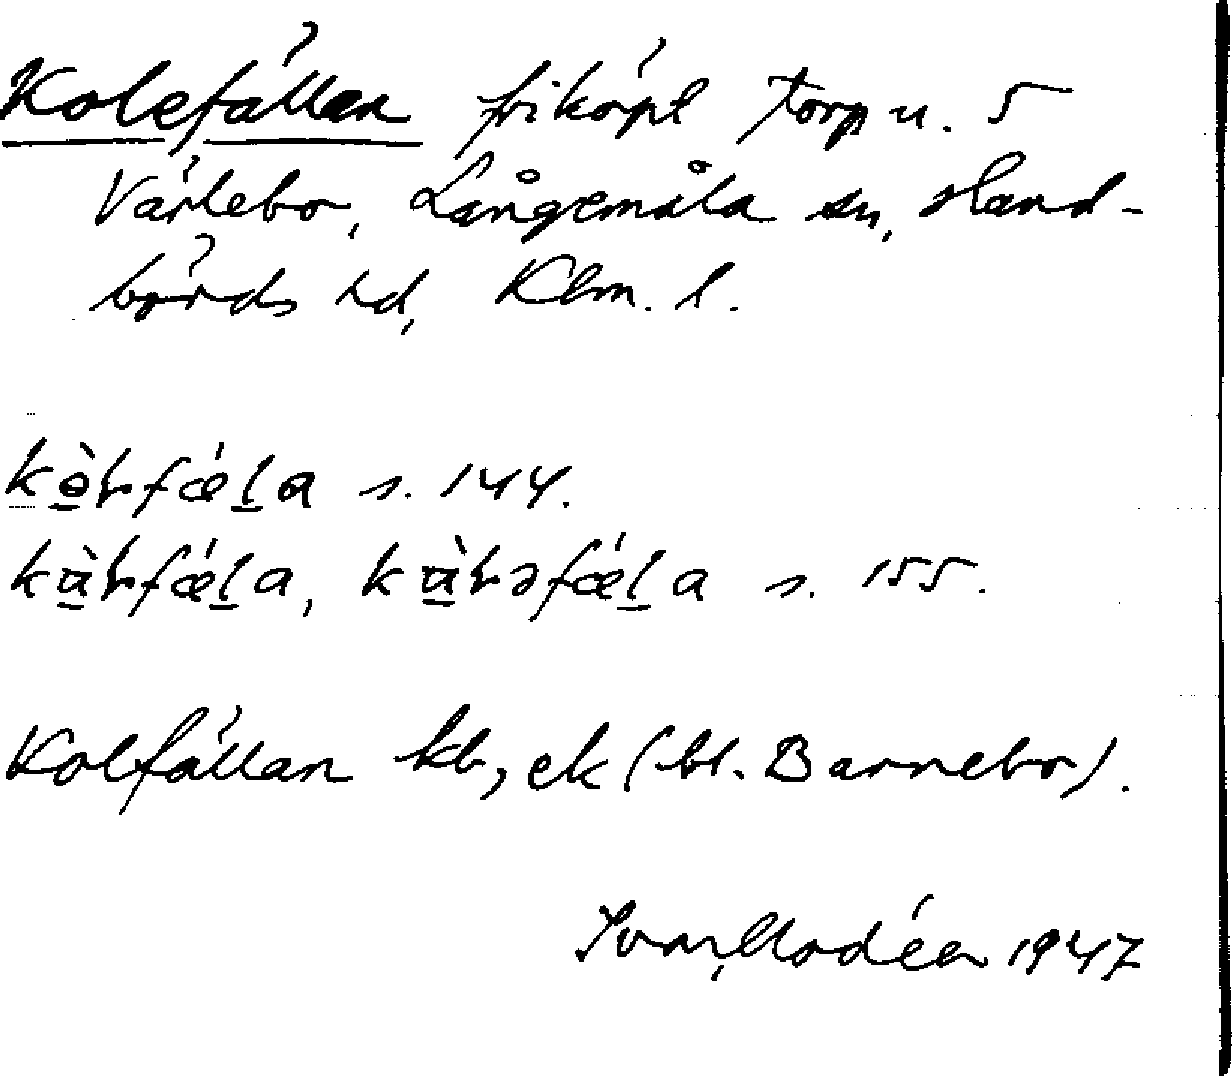 Kolefällan friköpt torp u. 5
Värlebo, Långemåla sn, Hand-
börds hd, Klm. l.
kɵ̀ꞎfǽl̲a s. 144.
kꭒ̀ꞎfǽl̲a, kꭒ̀ꞎəfǽl̲a s. 155.
Kolfällan kb, ek (bl. Barnebo).
Ivar Modéer 1947